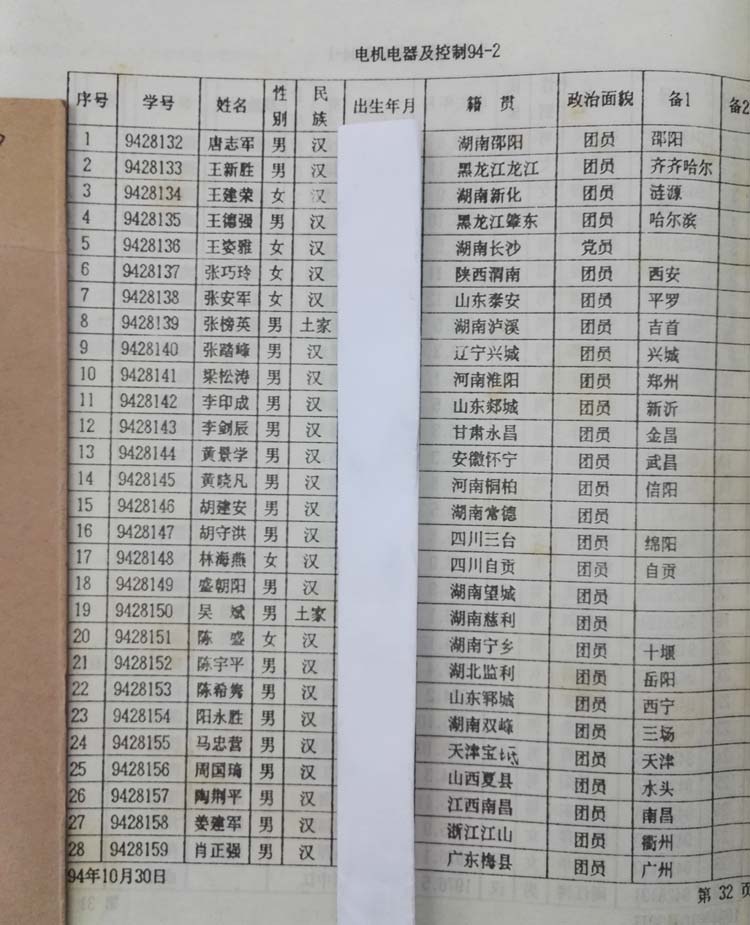 电机电器及控制94-2
序号 学号 姓名 性别 民族 出生年月 籍贯 政治面貌 备1 备2
1 9428132 唐志军 男 汉 湖南邵阳 团员 邵阳
2 9428133 王新胜 男 汉 黑龙江龙江 团员 齐齐哈尔
3 9428134 王建荣 女 汉 湖南新化 团员 涟源
4 9428135 王德强 男 汉 黑龙江肇东 团员 哈尔滨
5 9428136 王姿雅 女 汉 湖南长沙 党员
6 9428137 张巧玲 女 汉 陕西渭南 团员 西安
7 9428138 张安军 女 汉 山东泰安 团员 平罗
8 9428139 张榜英 男 土家 湖南泸溪 团员 吉首
9 9428140 张踏峰 男 汉 辽宁兴城 团员 兴城
10 9428141 梁松涛 男 汉 河南淮阳 团员 郑州
11 9428142 李印成 男 汉 山东郯城 团员 新沂
12 9428143 李剑辰 男 汉 甘肃永昌 团员 金昌
13 9428144 黄景学 男 汉 安徽怀宁 团员 武昌
14 9428145 黄晓凡 男 汉 河南桐柏 团员 信阳
15 9428146 胡建安 男 汉 湖南常德 团员
16 9428147 胡守洪 男 汉 四川三台 团员 绵阳
17 9428148 林海燕 女 汉 四川自贡 团员 自贡
18 9428149 盛朝阳 男 汉 湖南望城 团员
19 9428150 吴斌 男 土家 湖南慈利 团员
20 9428151 陈盛 女 汉 湖南宁乡 团员 十堰
21 9428152 陈宇平 男 汉 湖北监利 团员 岳阳
22 9428153 陈希隽 男 汉 山东郓城 团员 西宁
23 9428154 阳永胜 男 汉 湖南双峰 团员 三场
24 9428155 马忠营 男 汉 天津宝坻 团员 天津
25 9428156 周国琦 男 汉 山西夏县 团员 水头
26 9428157 陶荆平 男 汉 江西南昌 团员 南昌
27 9428158 姜建军 男 汉 浙江江山 团员 衢州
28 9428159 肖正强 男 汉 广东梅县 团员 广州
94年10月30日
第 32 页